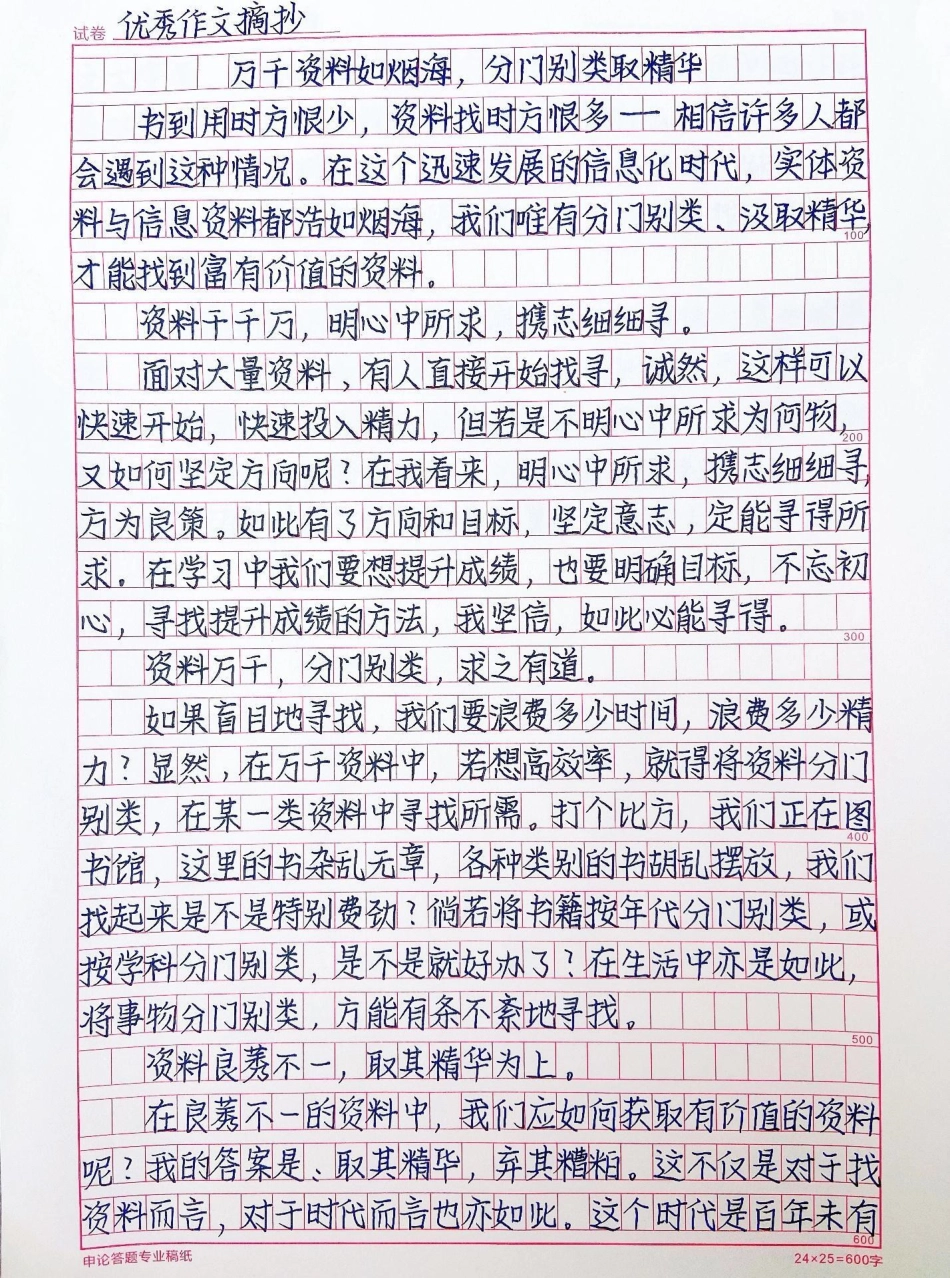 试卷 优秀作文摘抄
万千资料如烟海，分门别类取精华
书到用时方恨少，资料找时方恨多 — 相信许多人都
会遇到这种情况。在这个迅速发展的信息化时代，实体资
料与信息资料都浩如烟海，我们唯有分门别类、汲取精华，
100
才能找到富有价值的资料。
资料千千万，明心中所求，携志细细寻。
面对大量资料，有人直接开始找寻，诚然，这样可以
快速开始，快速投入精力，但若是不明心中所求为何物，
200
又如何坚定方向呢？在我看来，明心中所求，携志细细寻，
方为良策。如此有了方向和目标，坚定意志，定能寻得所
求。在学习中我们要想提升成绩，也要明确目标，不忘初
心，寻找提升成绩的方法，我坚信，如此必能寻得。
300
资料万千，分门别类，求之有道。
如果盲目地寻找，我们要浪费多少时间，浪费多少精
力？显然，在万千资料中，若想高效率，就得将资料分门
别类，在某一类资料中寻找所需。打个比方，我们正在图
400
书馆，这里的书杂乱无章，各种类别的书胡乱摆放，我们
找起来是不是特别费劲？倘若将书籍按年代分门别类，或
按学科分门别类，是不是就好办了？在生活中亦是如此，
将事物分门别类，方能有条不紊地寻找。
500
资料良莠不一，取其精华为上。
在良莠不一的资料中，我们应如何获取有价值的资料
呢？我的答案是、取其精华，弃其糟粕。这不仅是对于找
资料而言，对于时代而言也亦如此。这个时代是百年未有
600
申论答题专业稿纸 24×25=600字